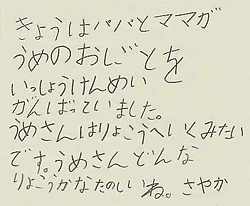 きょうはパパとママが
うめのおしごとを
いっしょうけんめい
がんばっていました。
うめさんはりょこうへいくみたい
です。うめさんどんな
りょこうかなたのしいね。さやか